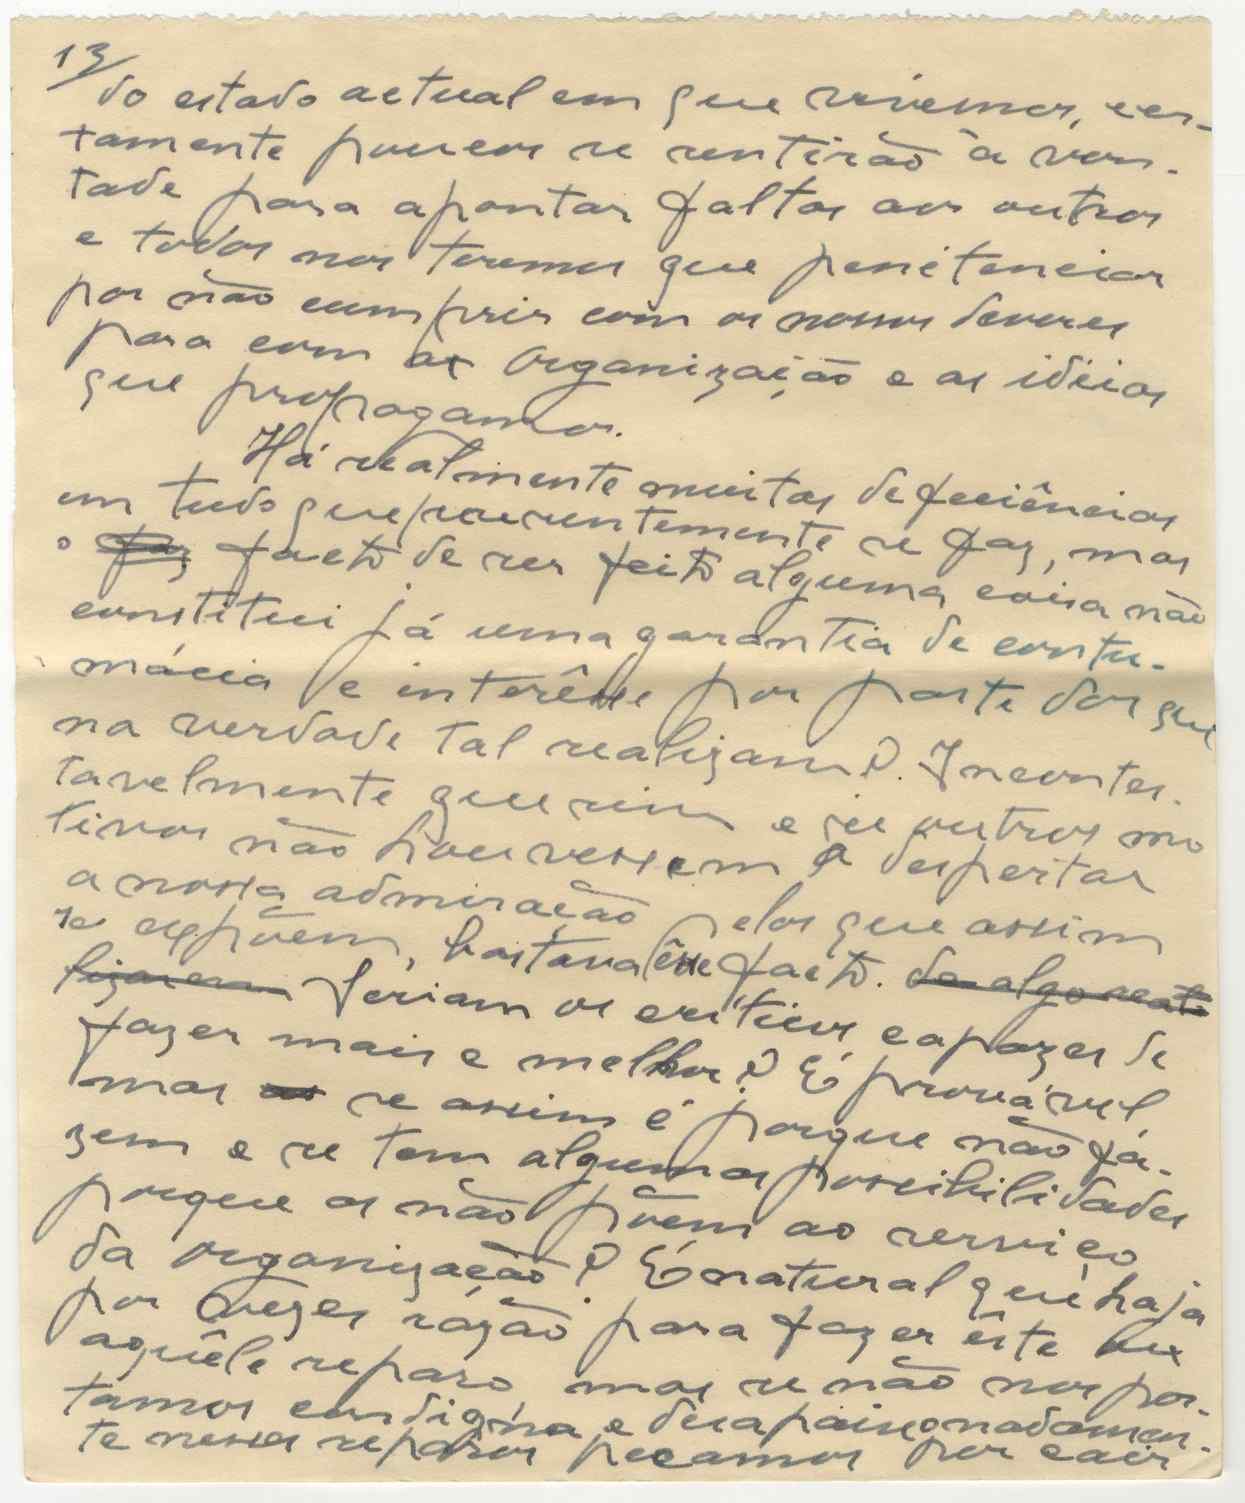 13/
do estado actual em que vivemos, cer-
tamente poucos se sentirão à von-
tade para apontar faltas aos outros
e todos nos teremos que penitenciar
por não cumprir com os nossos deveres
para com a Organização e as idéias
que propagamos.
Há realmente muitas deficiências
em tudo que presentemente se faz, mas
o faz facto de ser feito alguma coisa não
constitui já uma garantia de contu-
mácia e interêsse por parte dos que
na verdade tal realizam? Incontes-
tavelmente que sim e se outros mo
tivos não houvessem a despertar
a nossa admiração pelos que assim
se expõem, bastava êsse facto. de algo rea
lizarem Seriam os criticos capazes de
fazer mais e melhor? É provável
mas se assim é porque não fá-
zem e se tem algumas possibilidades
porque as não põem ao serviço
da organização? É natural que haja
por vezes razão para fazer êste ou
aquêle reparo, mas se não nos por-
tamos condigna e desapaixonadamen-
te nesses reparos pecamos por cair